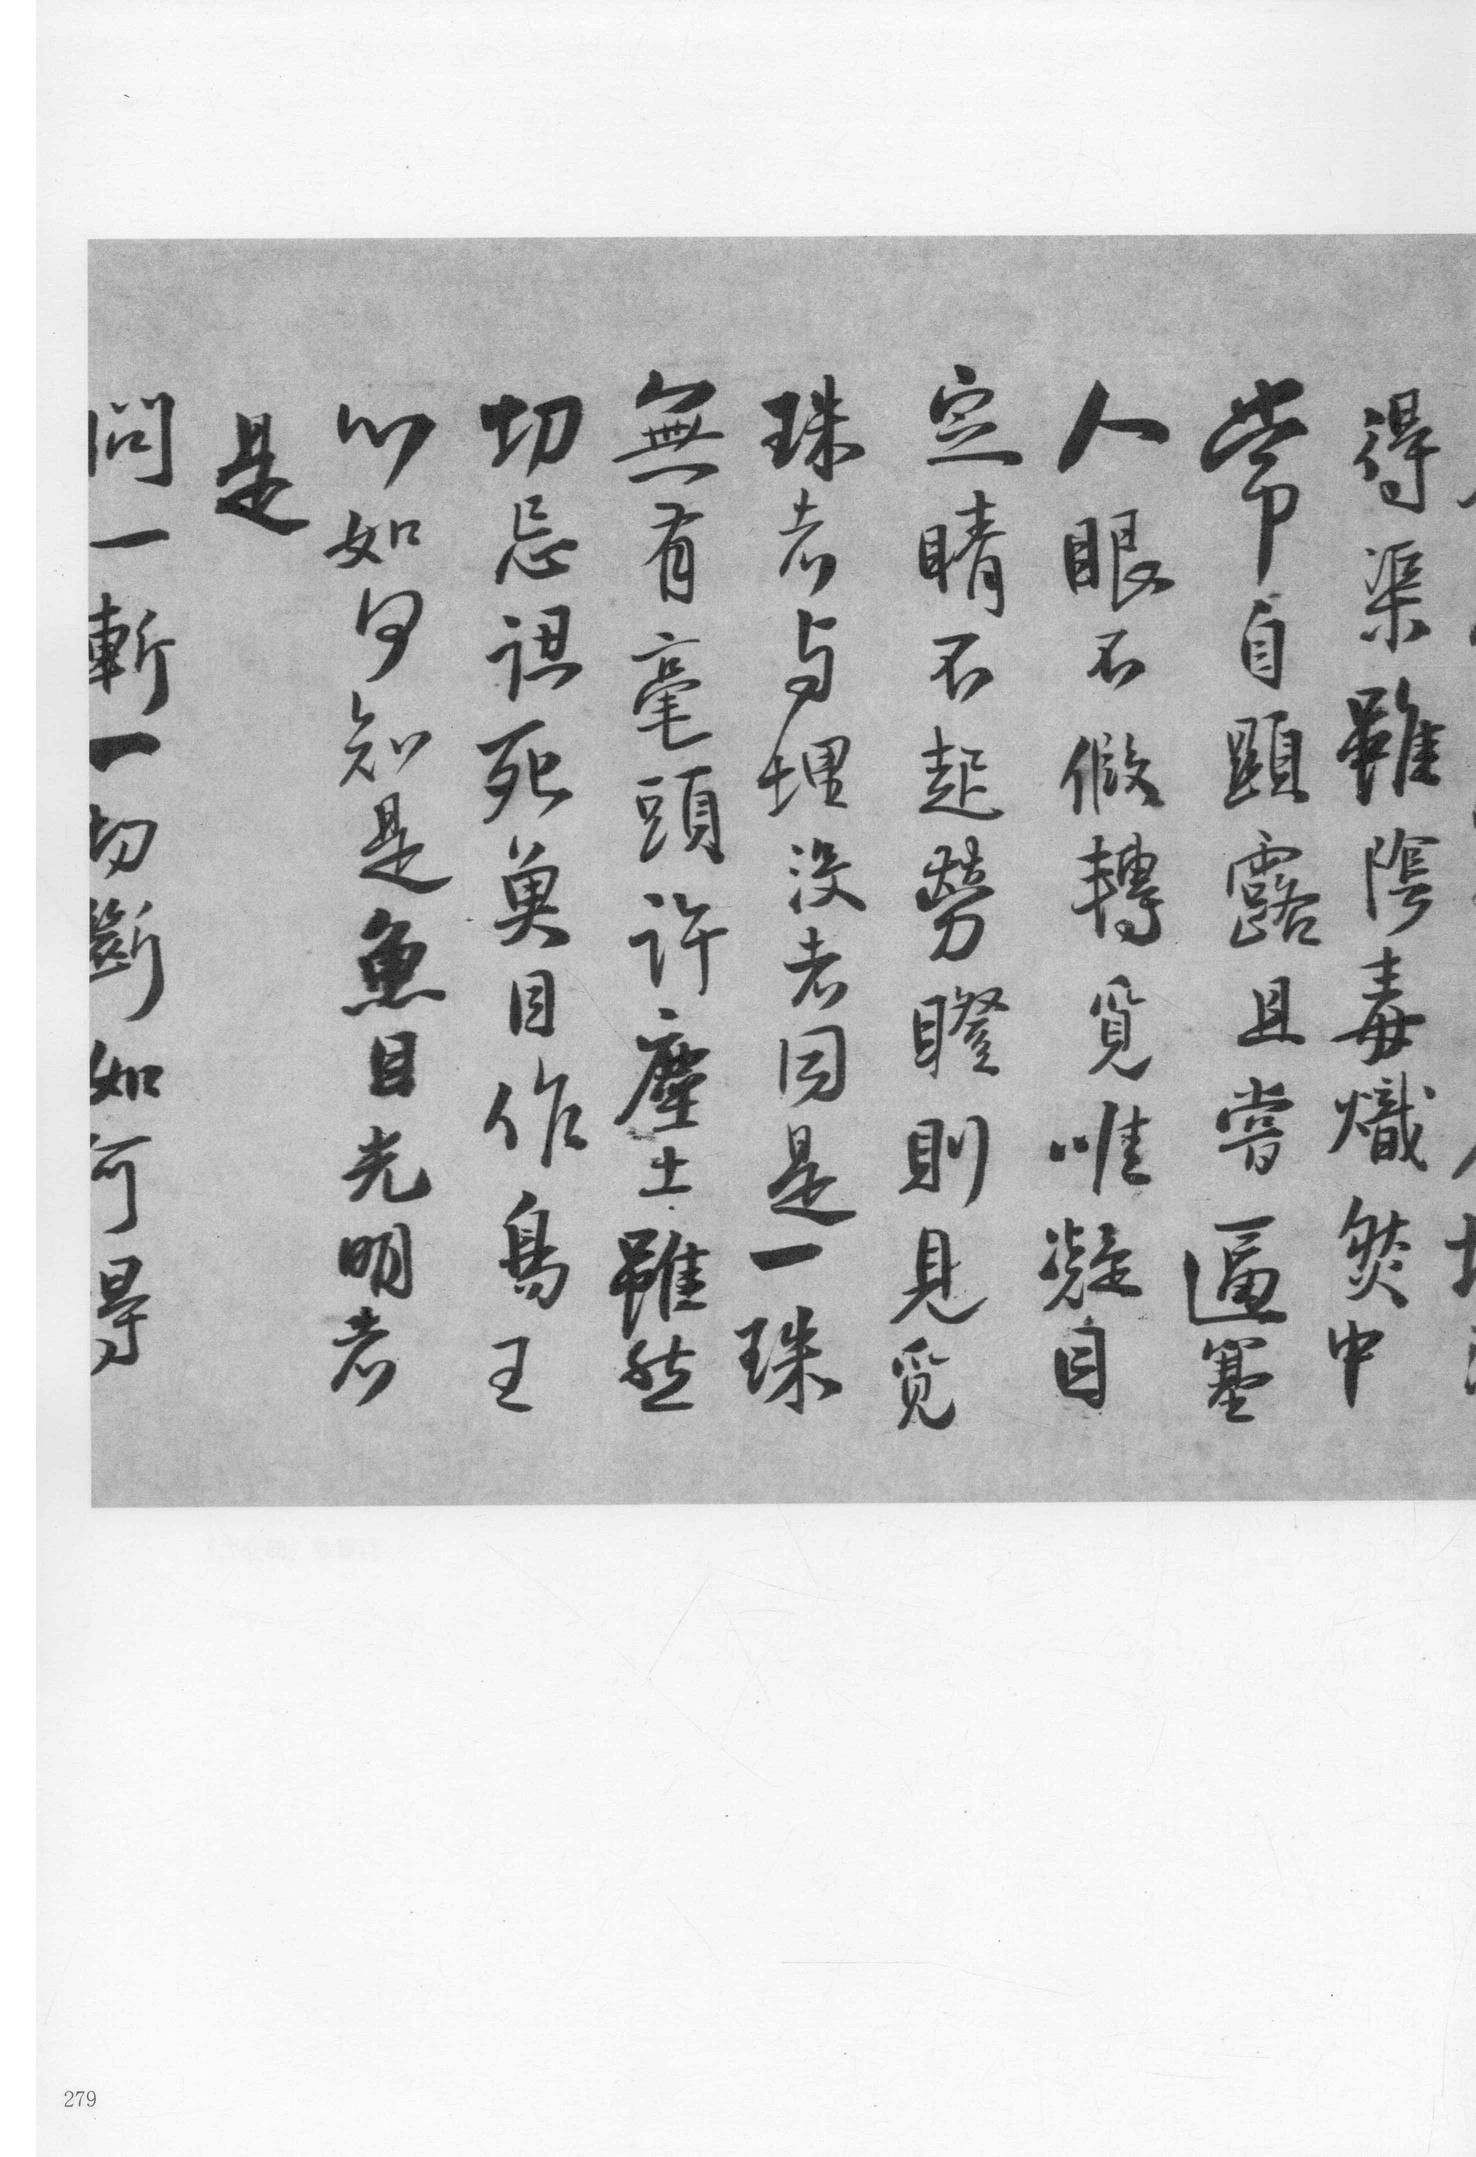 得渠雖陰毒熾然中
常自顯露且嘗逼塞
人眼不假轉覓唯凝目
定睛不起勞瞪則見覓
珠者与埋沒者同是一珠
無有毫頭許塵土雖然
切忌認死魚目作鳥王
心如何知是魚目光明者
是
問一斬一切斷如何得
279